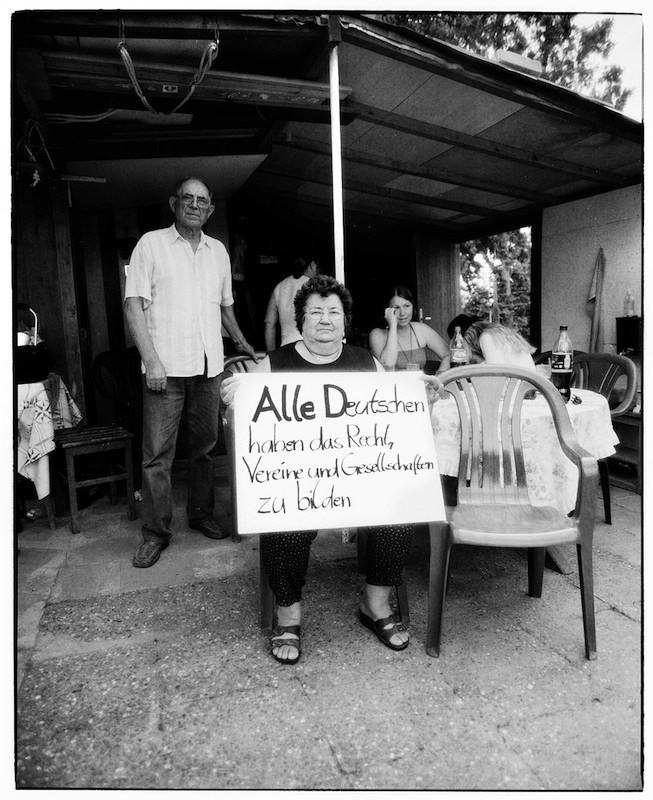 Alle Deutschen
haben das Recht,
Vereine und Gesellschaften
zu bilden